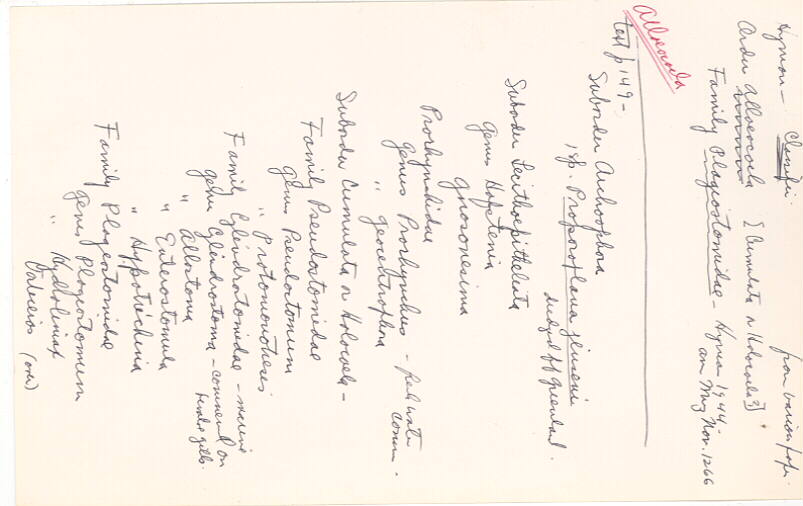 Alloeocoela
Hyman - Classific from various pape.
Order Alloeocoela [Cumulata or Holocoela?]
Family Plagiostomidae - Hyman 1944
Am Mus Nov. 1266
text p 149 -
Suborder Archoophora
1 sp. Proporoplana jenseni
dredged off Greenland.
Suborder Lecithoepitheliata
genus Hofstenia
Gnosonesima
Prorhynchidae
genus Prorhynchus - fresh water
comm.
" Geocentrophora
Suborder Cumulata or Holocoela -
Family Pseudostomidae
genus Pseudostomum
" Protomonotresis
Family Cylindrostomidae - marine
genus Cylindrostoma - commensal on
gills.
" Allostoma
" Enterostomula
" Hypotrichina
Family Plagiostomidae
genus Plagiostomum
" Hydrolimax
Vorticeros (over)